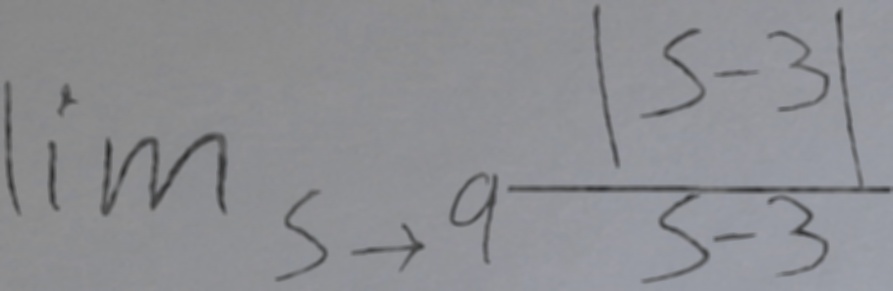 \lim_{s \to 9} \frac{|s-3|}{s-3}